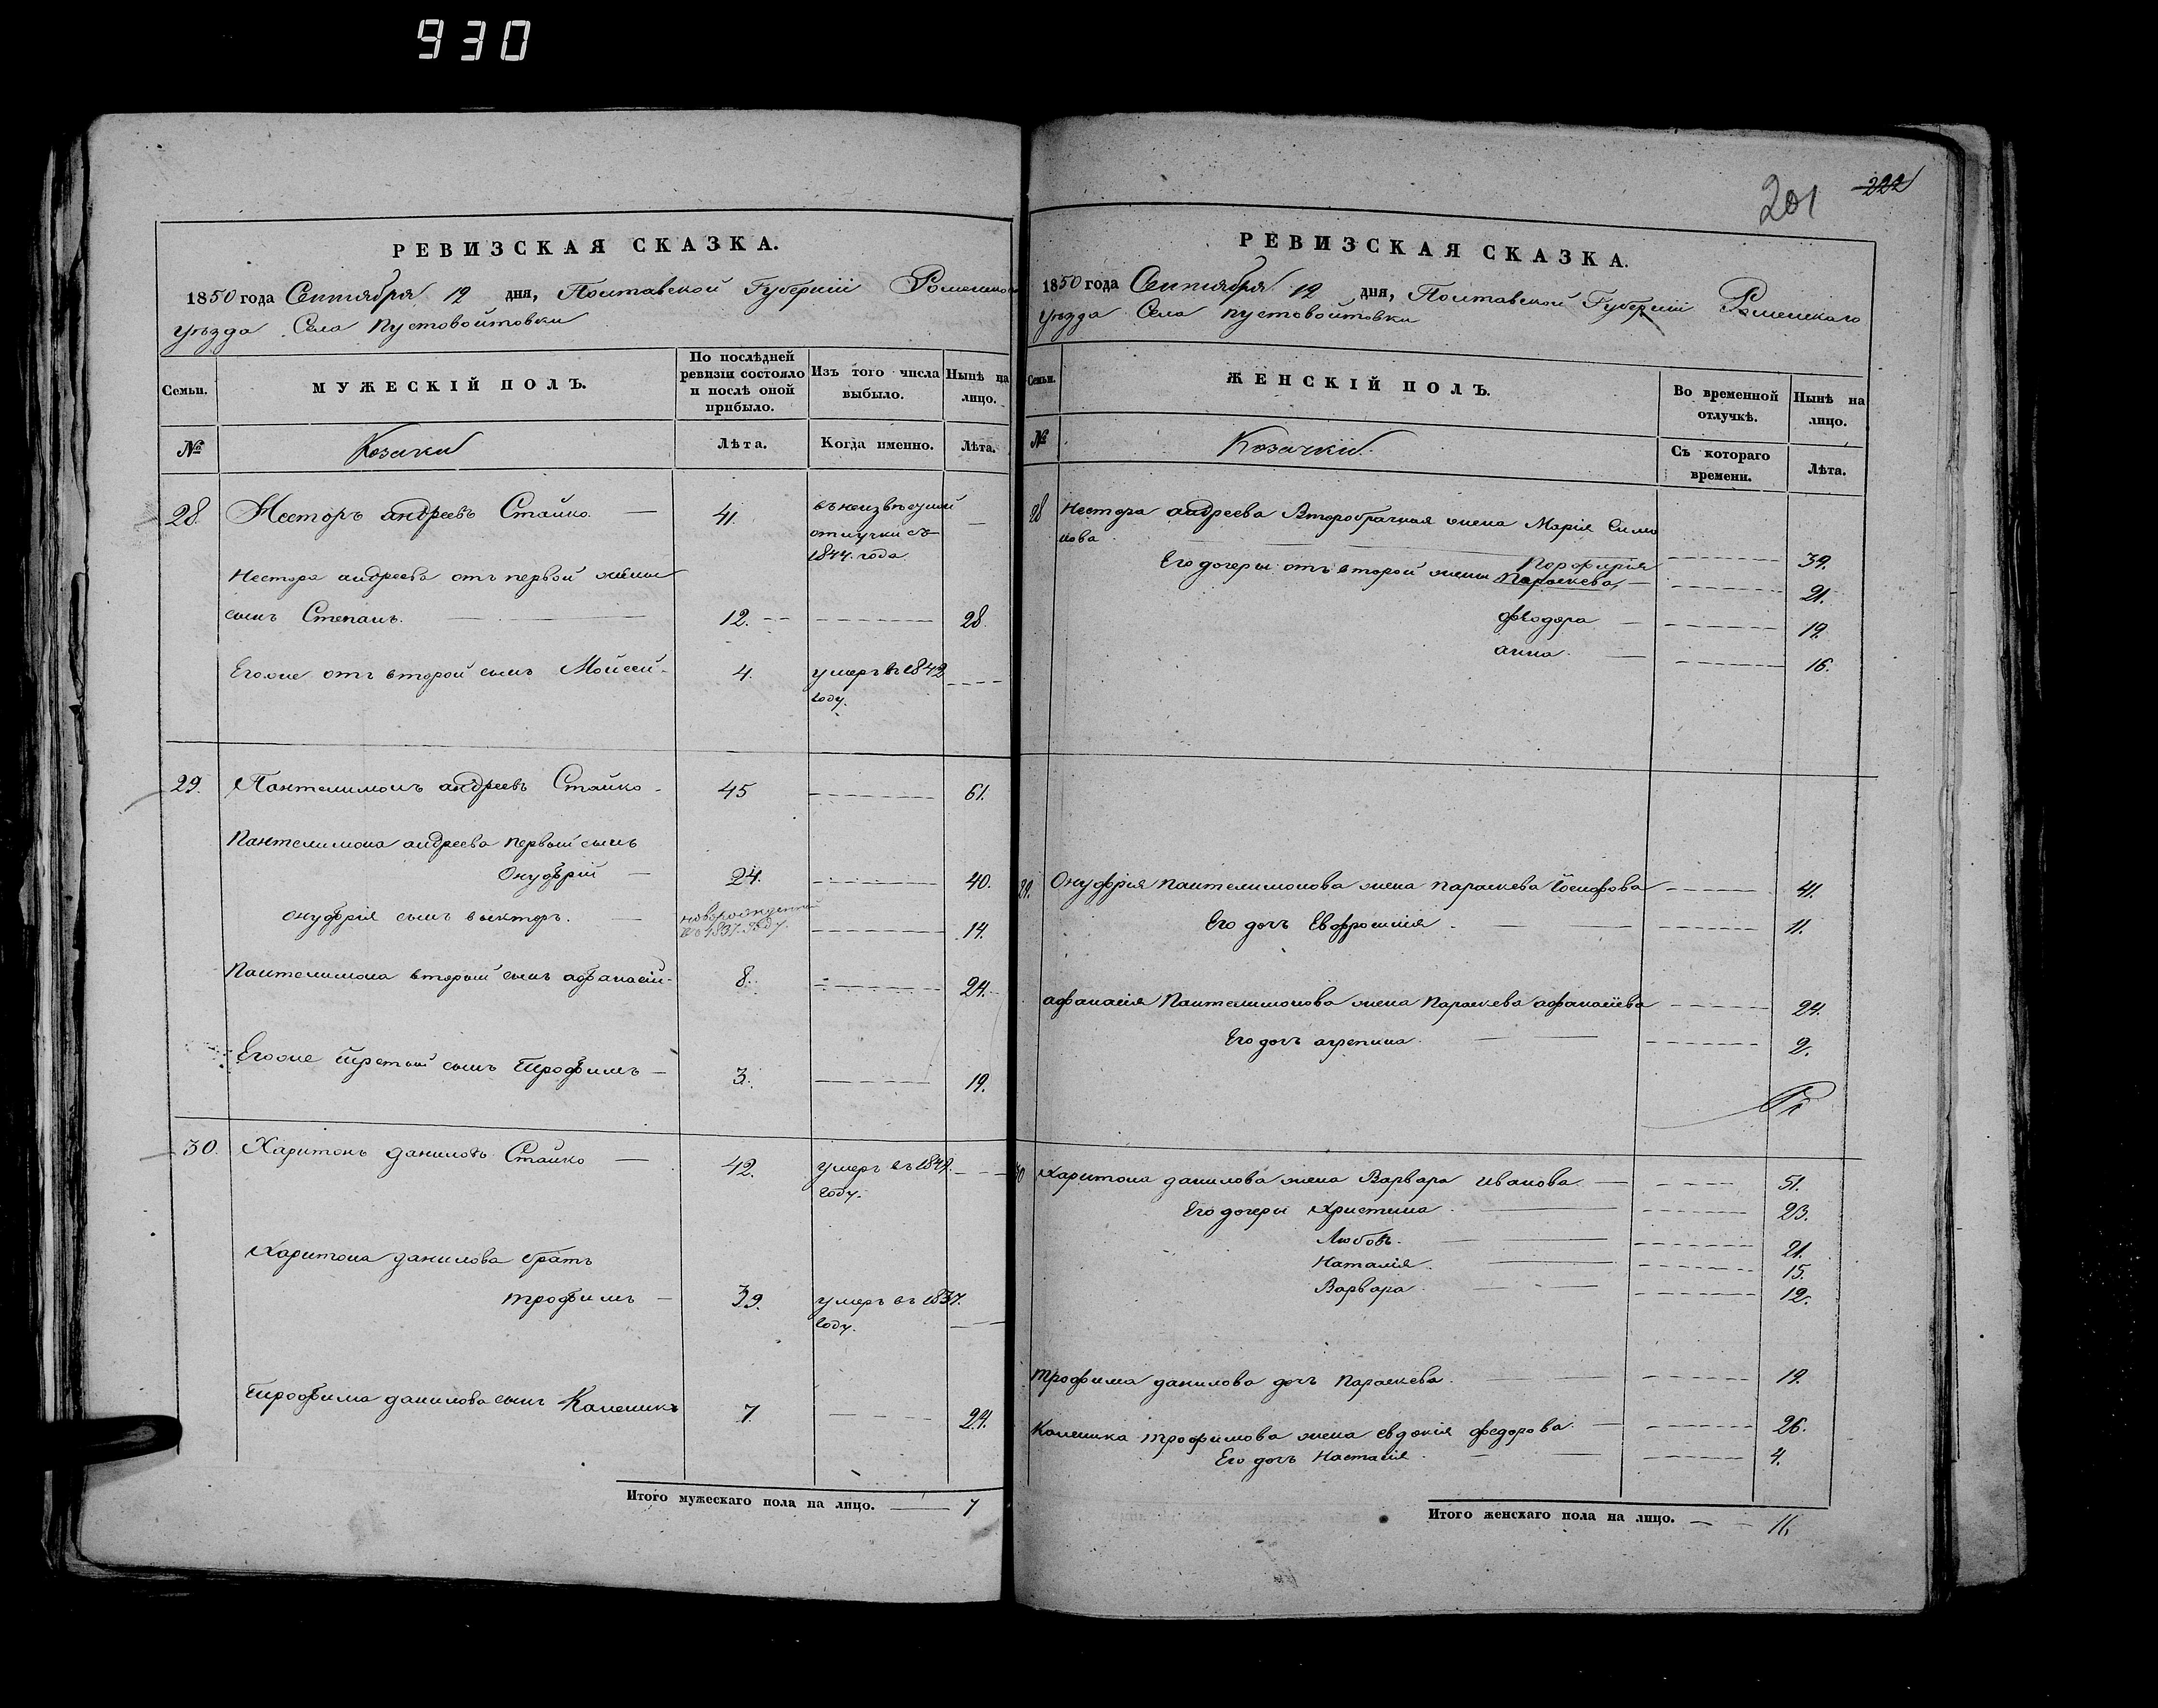 930
РЕВИЗСКАЯ СКАЗКА.
1850 года Сентября 12 дня, Полтавской Губернии Роменскаго
уѣзда Села Пустовойтовки
Семьи.
МУЖЕСКІЙ ПОЛЪ.
По послѣдней ревизіи состояло и послѣ оной прибыло.
Изъ того числа выбыло.
Нынѣ на лицо.
№
Козаки
Лѣта.
Когда именно.
Лѣта.
28. Несторъ андреевъ Стайко — 41. въ неизвѣстной —
отлучки съ
1844. года
Нестора андреева отъ первой жены
сынъ Степанъ. 12. 28.
Егоже отъ второй сынъ Мойсей. 4. умеръ въ 1842
году.
29. Пантелимонъ андреевъ Стайко 45 61.
Пантелимона андреева первый сынъ
Онуфрій — 24. 40.
онуфрія сынъ викторъ. — новорожденный 14.
въ 1837. году.
Пантелимона вторый сынъ афанасій 8. 24.
Егоже третый сынъ Трофимъ — 3. 19.
30. Харитонъ даниловъ Стайко — 42. умеръ въ 1849.
году.
Харитона данилова братъ
трофимъ — 39. умеръ въ 1837.
году.
Трофима данилова сынъ Каленикъ 7 24.
Итого мужескаго пола на лицо. — 7
201 222
РЕВИЗСКАЯ СКАЗКА.
1850 года Сентября 12 дня, Полтавской Губерніи Роменскаго
уѣзда Села пустовойтовки
Семьи.
ЖЕНСКІЙ ПОЛЪ.
Во временной отлучкѣ.
Нынѣ на лицо.
№
Козачки.
Съ котораго времени.
Лѣта.
28 Нестора андреева Второбрачная жена Марія Симо
нова 39.
Порфирія
Его дочеры отъ второй жены Параскева — 21.
феодора — 19.
анна. — 16.
29. Онуфрія пантелимонова жена параскева Іосифова 41.
Его дочъ Евфросинія 11.
афанасія Пантелимонова жена Параскева афанасіева 24.
Его дочъ агрепина. 2.
30 Харитона данилова жена Варвара иванова — 51.
Его дочеры Христина 23.
Любовъ. 21.
Наталія. 15.
Варвара. 12.
трофима данилова дочъ Параскева. 19.
Каленика трофимова жена евдокія федорова. — 26.
Его дочъ Настасія 4.
Итого женскаго пола на лицо. — 16